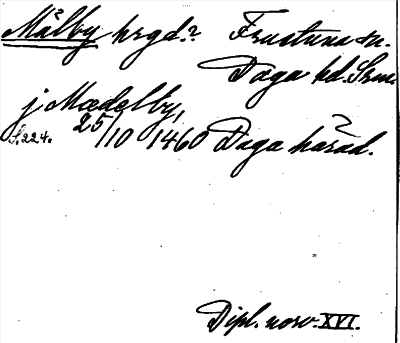 Målby hrgd.? Frustuna sn.
Daga hd. Srm.
j Mædelby,
S. 224. 25/10 1460 Daga härad.
?
Dipl. norv. XVI.